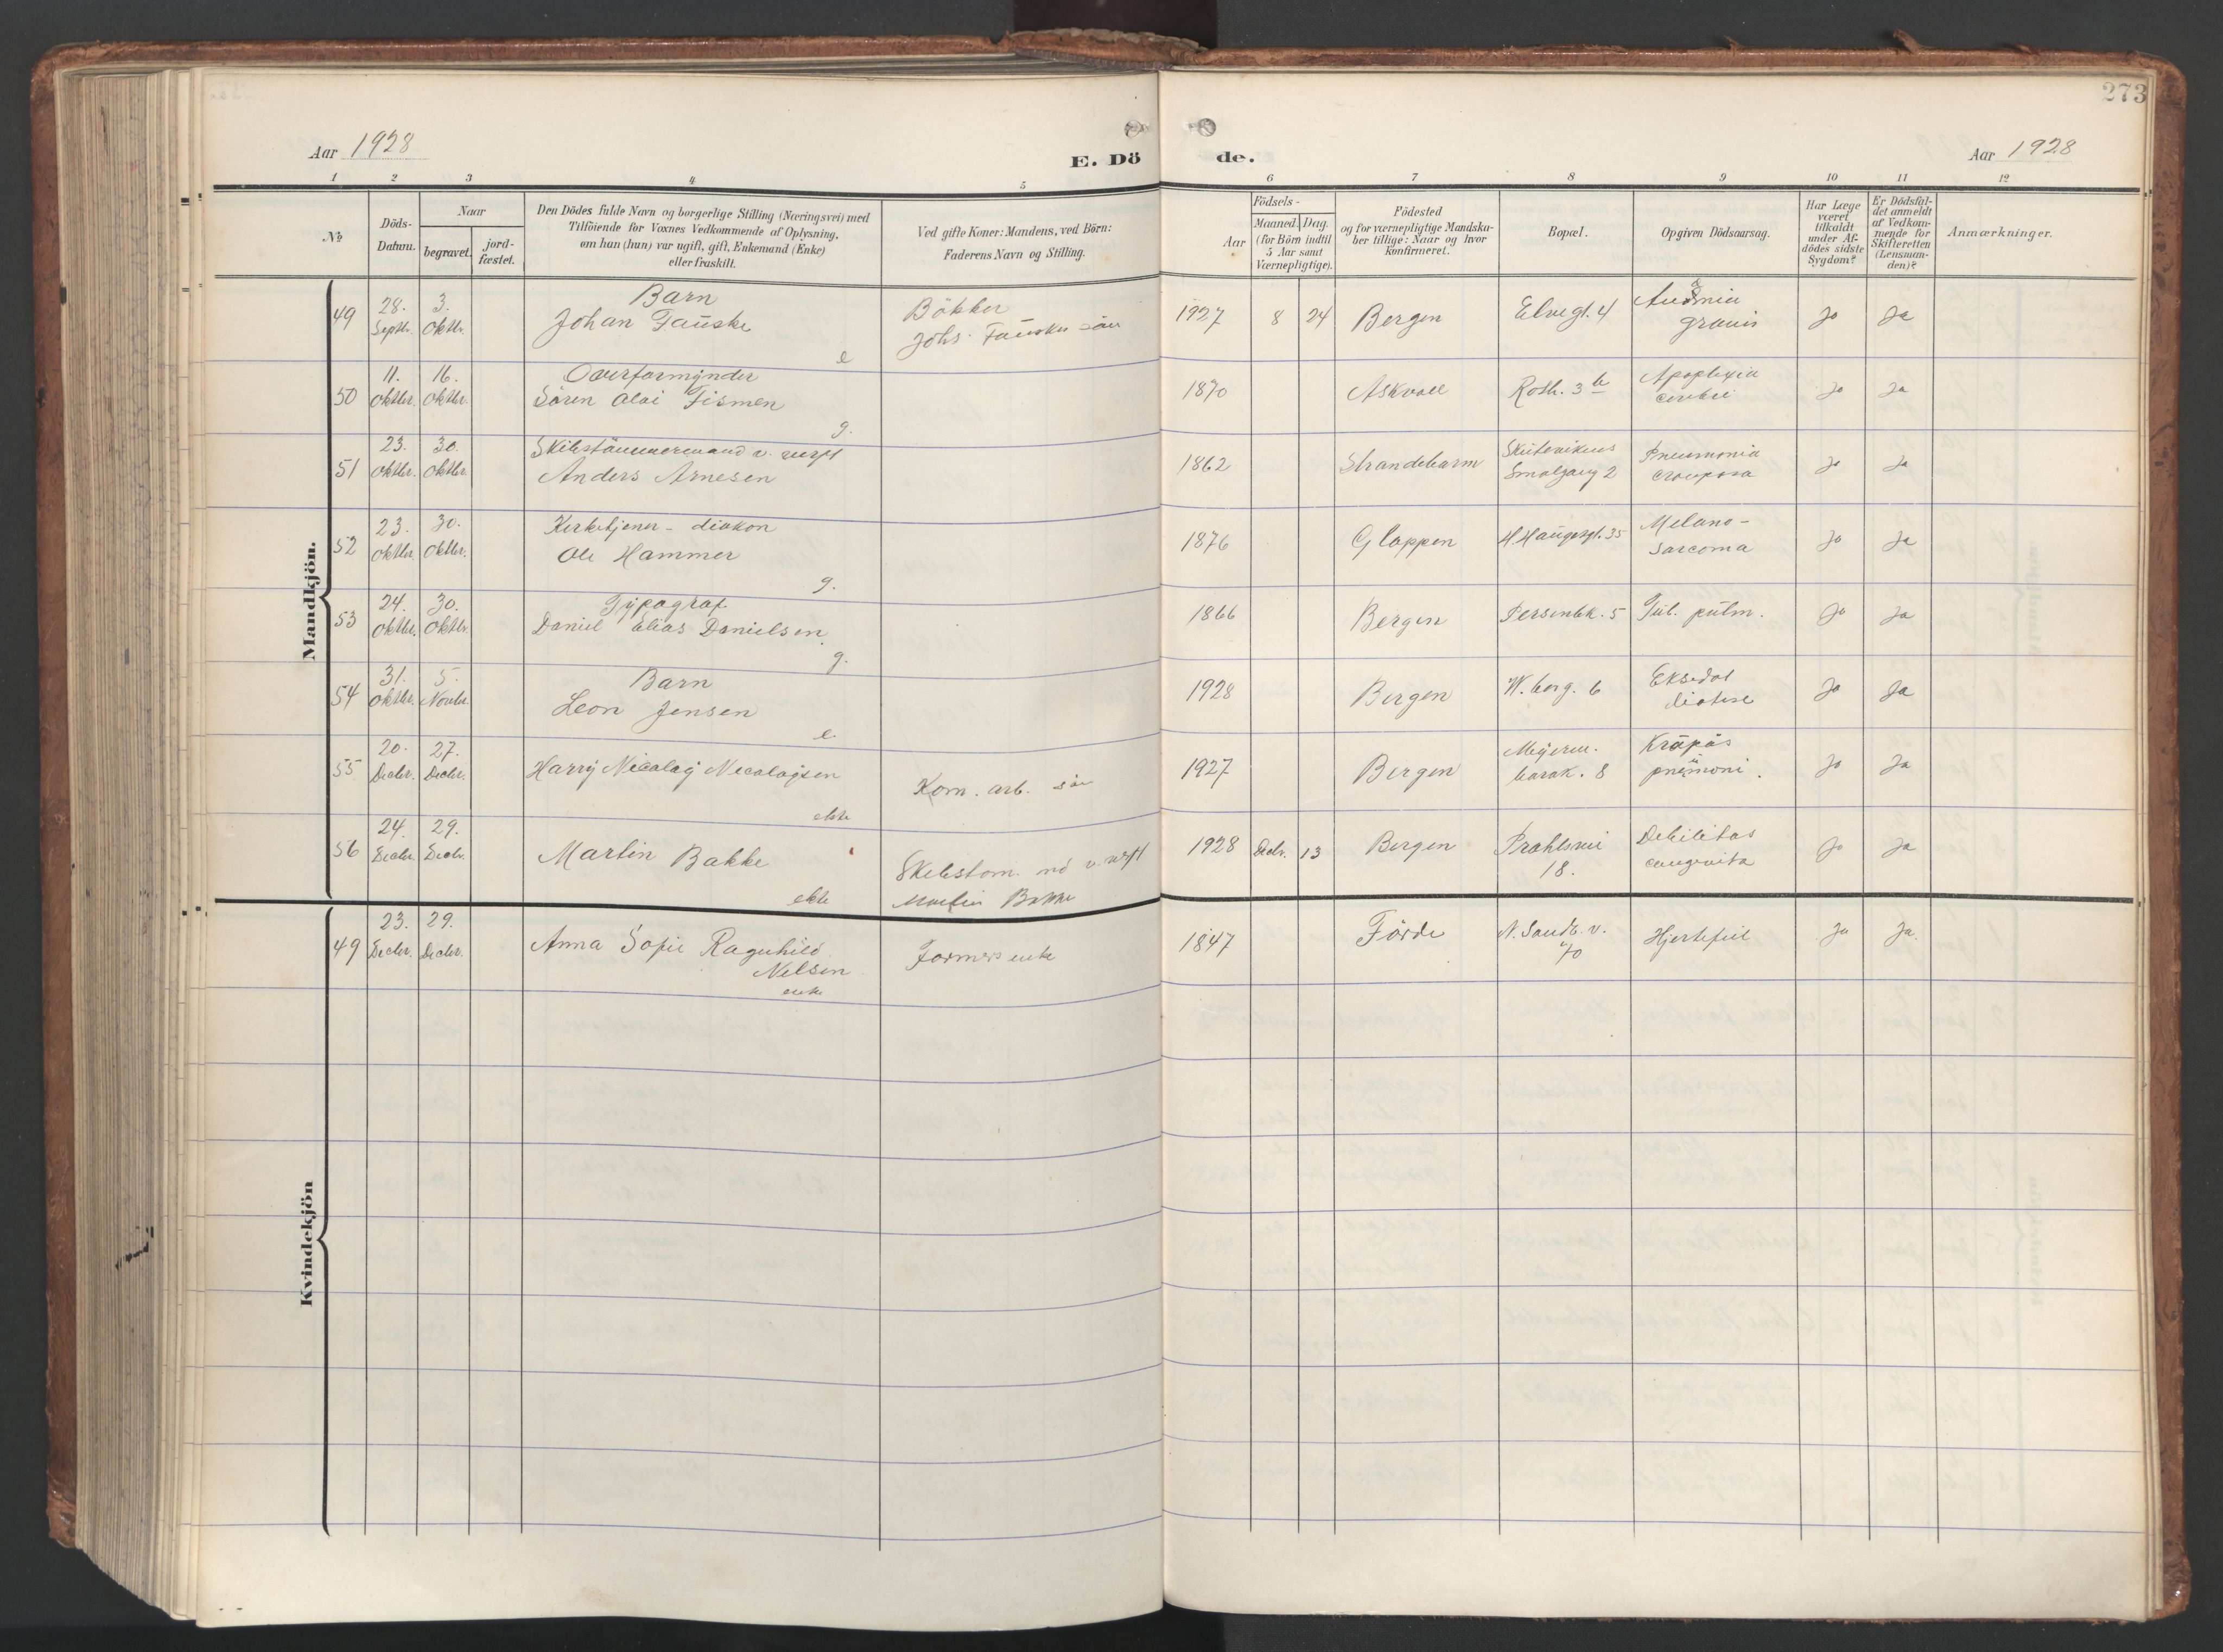 273
Aar 1928
E. Dö
de.
Aar 1928
1 2 3 4 5 6 7 8 9 10 11 12
№
Döds-
Datum.
Naar
begravet.
jord-
fæstet.
Den Dödes fulde Navn og borgerlige Stilling (Næringsvei) med
Tilföiende for Voxnes Vedkommende af Oplysning,
om han (hun) var ugift, gift, Enkemand (Enke)
eller fraskilt.
Ved gifte Koner: Mandens, ved Börn:
Faderens Navn og Stilling.
Födsels-
Aar
Maaned. Dag.
(for Börn indtil
5 Aar samt
Værnepligtige).
Födested
og for værnepligtige Mandska-
ber tillige: Naar og hvor
Konfirmeret.
Bopæl.
Opgiven Dödsaarsag.
Har Læge
været
tilkaldt
under Af-
dödes sidste
Sygdom?
Er Dödsfal-
det anmeldt
af Vedkom-
mende for
Skifteretten
(Lensman-
den)?
Anmærkninger.
Mandkjön.
49 28. Septbr. 3. Oktbr. Barn
Johan Fauske
e
Bökker
Johs. Fauske sön
1927 8 24 Bergen Elvegt. 4 gravis Ja Ja
50 11. Oktbr. 16. Oktbr. Overformynder
Sören Olai Fismen
g.
1870 Askvoll Roth. 3 b Apoplexia
cerebri Ja Ja
51 23. Oktbr. 30. Oktbr. Skibstömmermand v. verft
Anders Arnesen
1862 Strandebarm Skutevikens
Smalgang 2 Pneumonia
crouposa Ja Ja
52 23. Oktbr. 30. Oktbr. Kirketjener - diakon
Ole Hammer
g.
1876 Gloppen H. Haugesgt. 35 Melano-
sarcoma Ja Ja
53 24. Oktbr. 30. Oktbr. Typograf
Daniel Elias Danielsen
g.
1866 Bergen Persenbk. 5 Tub. pulm. Ja Ja
54 31. Oktbr. 5. Novbr. Barn
Leon Jensen
e.
1928 Bergen W. berg. 6 Eksudat
diatese Ja Ja
55 20. Decbr. 27. Decbr. Harry Nicolay Nicolaysen
ekte
Kom. arb. sön
1927 Bergen Meyerm.
barak. 8 Krupös
pneumoni. Ja Ja
56 24. Decbr. 29. Decbr. Martin Bakke
ekte
Skibstöm. md v. verft
Martin Bakke
1928 Decbr. 13 Bergen Prahlsvei
18. Debilitas
congenita Ja Ja
Kvindekjön
49 23. Decbr. 29. Decbr. Anna Sofie Ragnhild
Nilsen
enke
Formers enke
1847 Förde N. Sandv. v.
70 Hjertefeil Ja Ja.